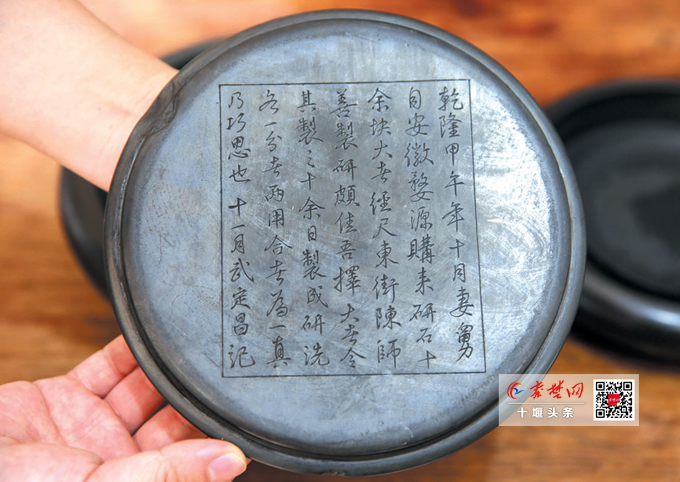 乾隆甲午年十月妻舅
自安徽婺源購来研石十
余块大者經尺東街陳師
善製研頗佳吾擇大者令
其製之十余日製成研洗
各一分者两用合者為一真
乃巧思也 十一月武定昌記
秦楚网
十堰头条